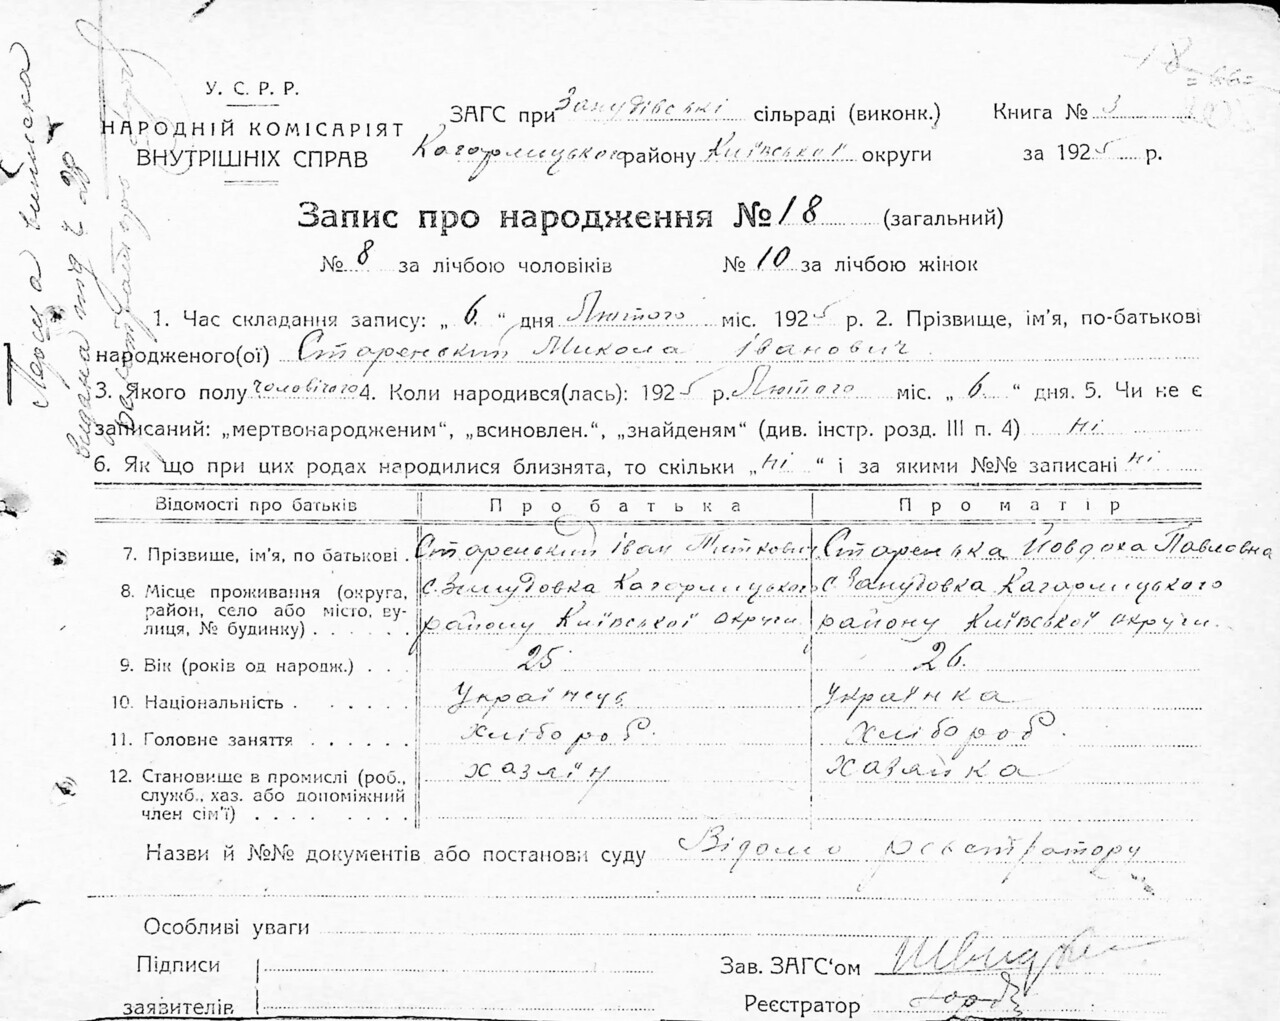 У. С. Р. Р.
НАРОДНІЙ КОМІСАРІЯТ
ВНУТРІШНІХ СПРАВ
ЗАГС при Занудівські сільраді (виконк.)
Кагарлицького району Київської округи
Книга № 3
за 1925 р.
Запис про народження № 18 (загальний)
№ 8 за лічбою чоловіків № 10 за лічбою жінок
1. Час складання запису: „ 6 “ дня Лютого міс. 1925 р. 2. Прізвище, ім’я, по-батькові
народженого(ої) Старенький Микола Іванович
3. Якого полу чоловічого 4. Коли народився(лась): 1925 р. Лютого міс. „ 6 “ дня. 5. Чи не є
записаний: „мертвонародженим“, „всиновлен.“, „знайденям“ (див. інстр. розд. III п. 4) ні
6. Як що при цих родах народилися близнята, то скільки „ні “ і за якими №№ записані ні
Відомості про батьків Про батька Про матір
7. Прізвище, ім’я, по батькові . Старенький Іван Старенька Йовдоха Павловна
8. Місце проживання (округа, с. Кагарлицького с. Занудовка Кагарлицького
район, село або місто, ву- району Київської округи району Київської округи
лиця, № будинку) . . . . . .
9. Вік (років од народж.) . . . 25 26
10. Національність . . . . . . Українець Українка
11. Головне заняття . . . . . . Хлібороб Хлібороб
12. Становище в промислі (роб., хазяїн хазяйка
служб., хаз. або допоміжний
член сім’ї) . . . . . . . .
Назви й №№ документів або постанови суду Відомо реєстратору
Особливі уваги
Підписи
заявителів
Зав. ЗАГС‘ом
Реєстратор